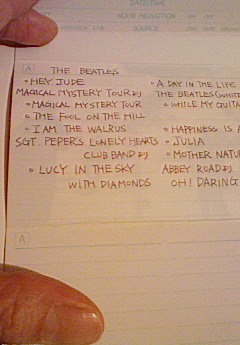 DATE/TIME
NOISE REDUCTION ON OFF
SOURCE
A THE BEATLES
• HEY JUDE
MAGICAL MYSTERY TOUR より
• MAGICAL MYSTERY TOUR
• THE FOOL ON THE HILL
• I AM THE WALRUS
SGT. PEPERS LONELY HEARTS
CLUB BAND より
• LUCY IN THE SKY
WITH DIAMONDS
• A DAY IN THE LIFE
THE BEATLES (WHITE
• WHILE MY GUITA
• HAPPINESS IS A
• JULIA
• MOTHER NATU
ABBEY ROAD より
OH! DARING
A